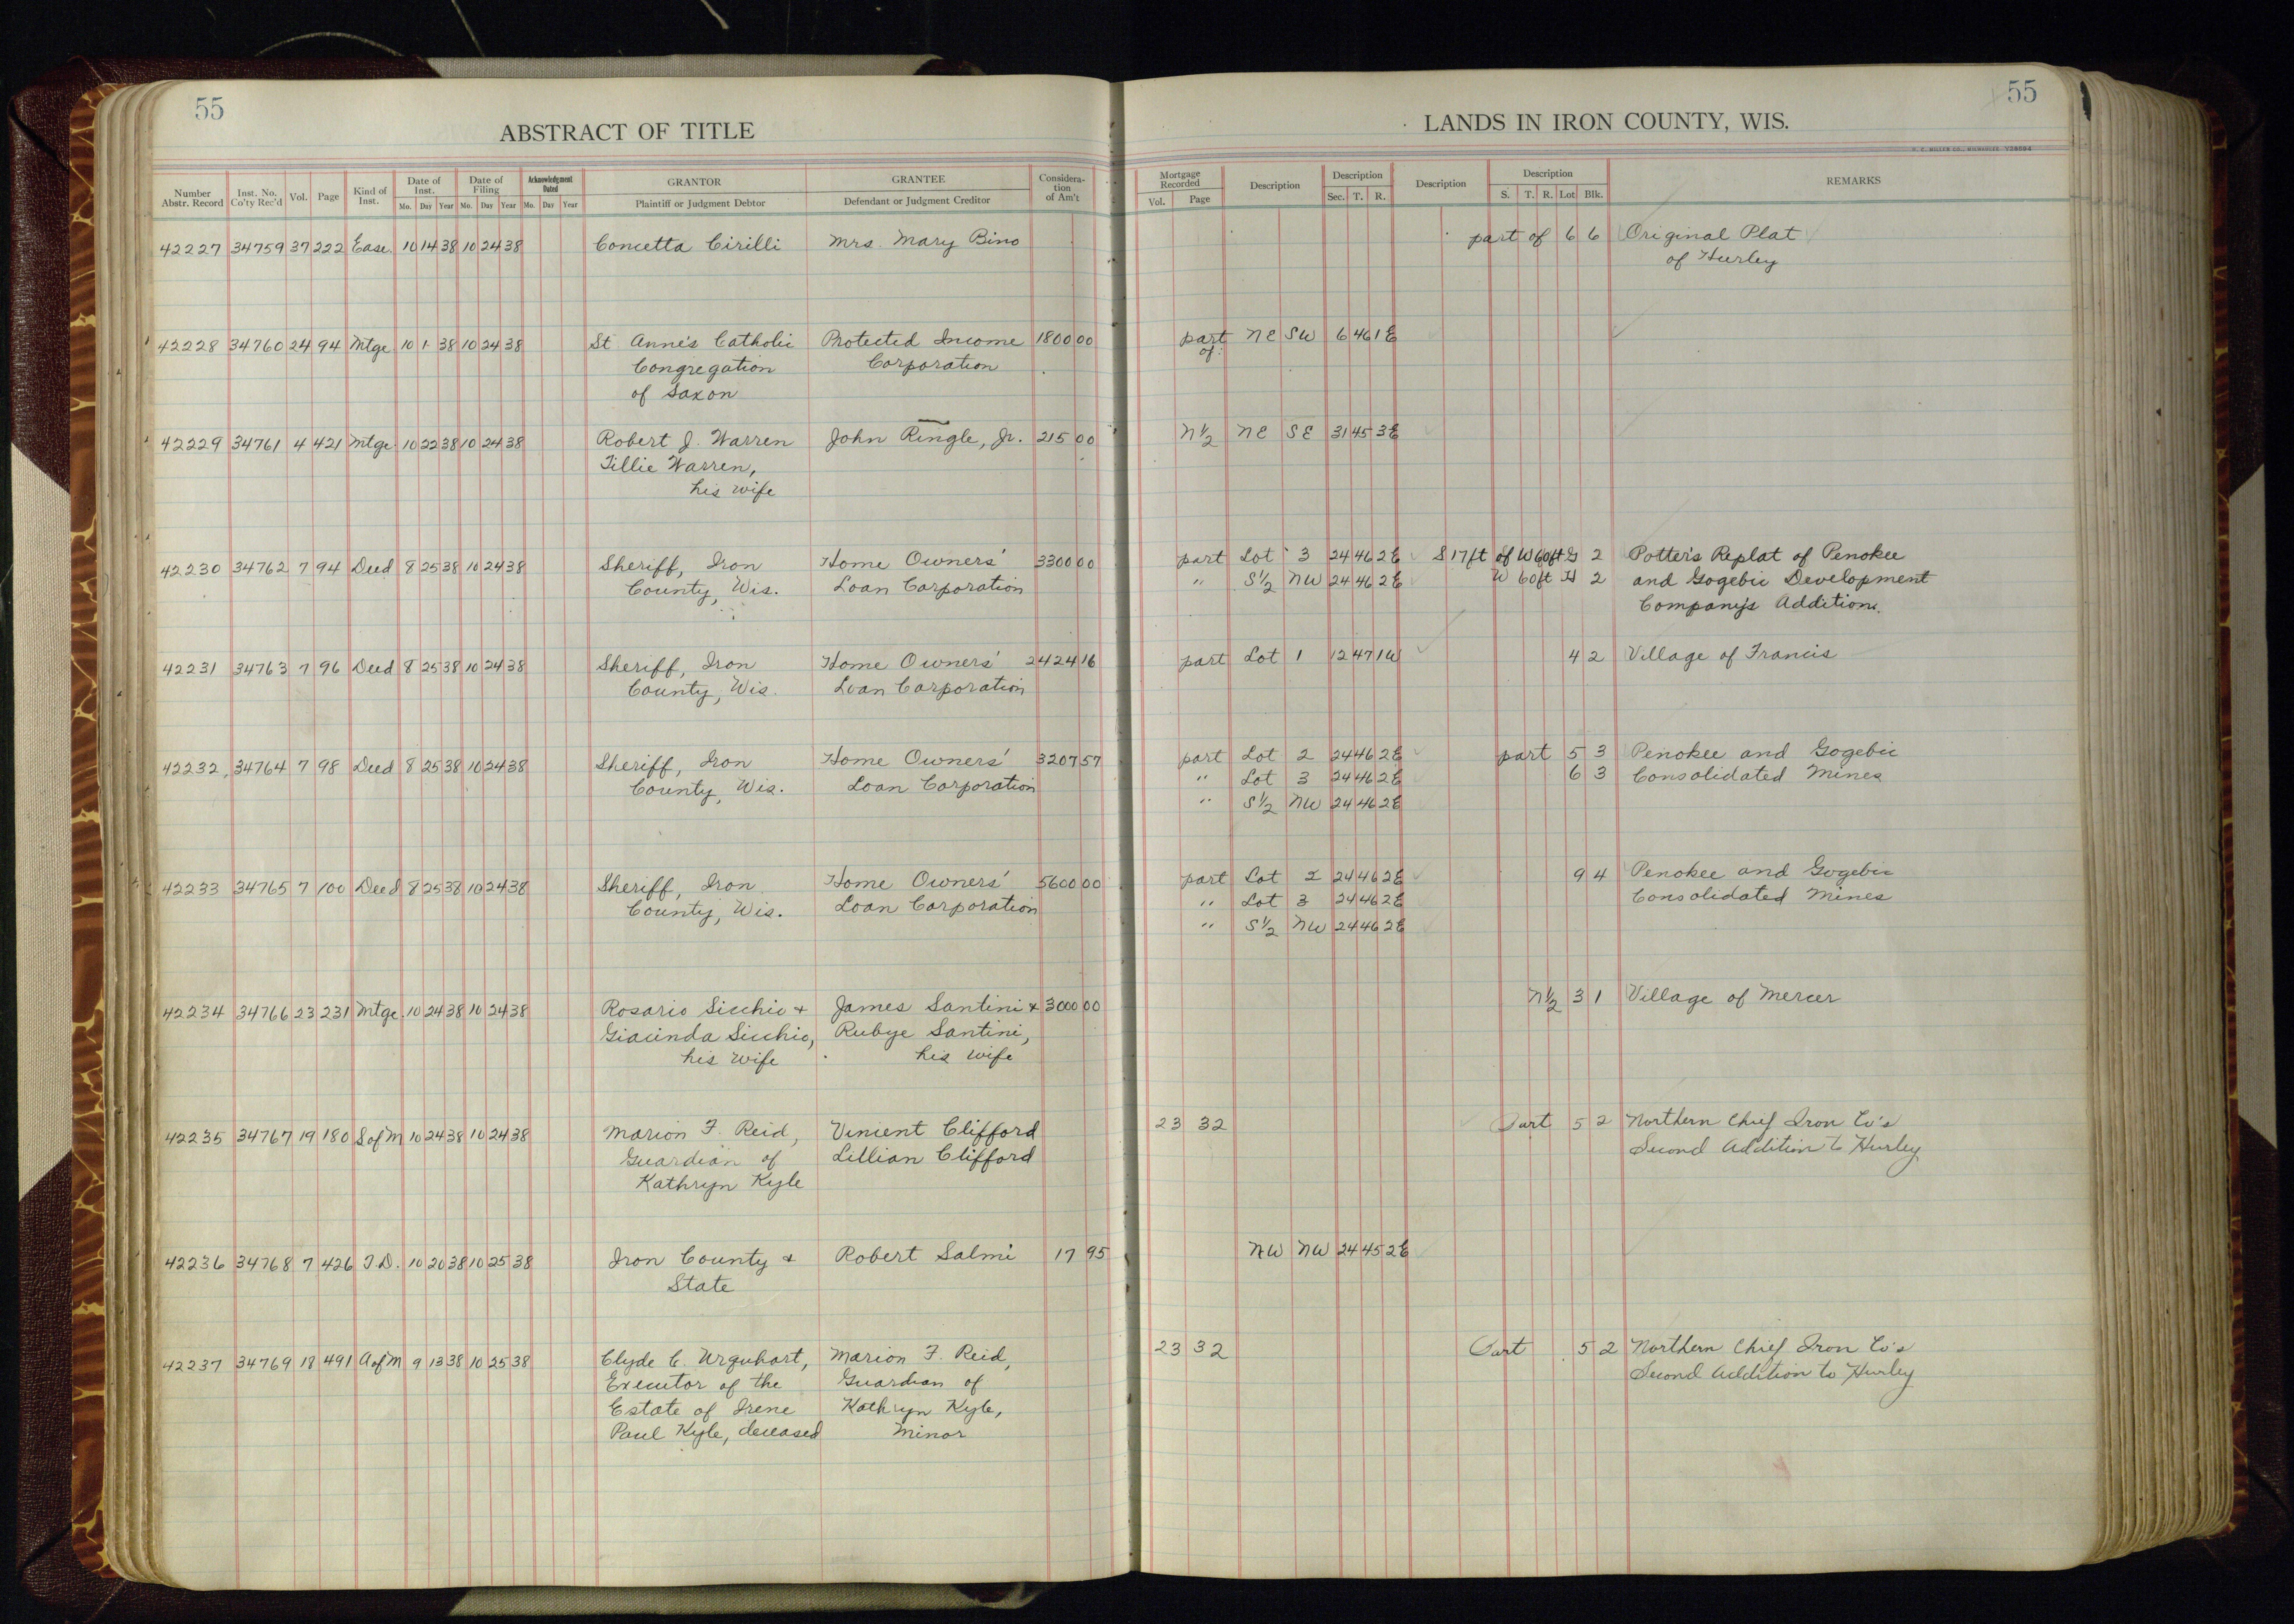 55
ABSTRACT OF TITLE
Number Abstr. Record | Inst. No. Co'ty Rec'd | Vol. | Page | Kind of Inst. | Date of Inst. Mo. Day Year | Date of Filing Mo. Day Year | Acknowledgment Dated Mo. Day Year | GRANTOR Plaintiff or Judgment Debtor | GRANTEE Defendant or Judgment Creditor | Consideration of Am't
42227 34759 37 222 Ease. 10 14 38 10 24 38 Concetta Cirilli Mrs. Mary Bino
42228 34760 24 94 Mtge 10 1 38 10 24 38 St Anne's Catholic Protected Income 1800 00
Congregation Corporation
of Saxon
42229 34761 4 421 Mtge. 10 22 38 10 24 38 Robert J. Warren John Ringle, Jr. 215 00
Tillie Warren,
his wife
42230 34762 7 94 Deed 8 25 38 10 24 38 Sheriff, Iron Home Owners' 3300 00
County, Wis. Loan Corporation
42231 34763 7 96 Deed 8 25 38 10 24 38 Sheriff, Iron Home Owners' 2424 16
County, Wis. Loan Corporation
42232 34764 7 98 Deed 8 25 38 10 24 38 Sheriff, Iron Home Owners' 3207 57
County, Wis. Loan Corporation
42233 34765 7 100 Deed 8 25 38 10 24 38 Sheriff, Iron Home Owners' 5600 00
County, Wis. Loan Corporation
42234 34766 23 231 Mtge. 10 24 38 10 24 38 Rosario Sicchio + James Santini + 3000 00
Giacinda Sicchio, Rubye Santini,
his wife his wife
42235 34767 19 180 S of M 10 24 38 10 24 38 Marion F. Reid, Vincent Clifford
Guardian of Lillian Clifford
Kathryn Kyle
42236 34768 7 426 T.D. 10 20 38 10 25 38 Iron County + Robert Salmi 17 95
State
42237 34769 18 491 A of M 9 13 38 10 25 38 Clyde C. Urquhart, Marion F. Reid,
Executor of the Guardian of
Estate of Irene Kathryn Kyle,
Paul Kyle, deceased Minor
55
LANDS IN IRON COUNTY, WIS.
H. C. MILLER CO., MILWAUKEE Y28594
Mortgage Recorded Vol. Page | Description | Description Sec. T. R. | Description | Description S. T. R. Lot Blk. | REMARKS
part of 6 6 Original Plat
of Hurley
part NE SW 6 46 1E
of
N½ NE SE 31 45 3E
part Lot 3 24 46 2E S 17 ft of W 60 ft G 2 Potter's Replat of Penokee
" S½ NW 24 46 2E W 60 ft H 2 and Gogebic Development
Company's Addition.
part Lot 1 12 47 1W 4 2 Village of Francis
part Lot 2 24 46 2E part 5 3 Penokee and Gogebic
" Lot 3 24 46 2E 6 3 Consolidated Mines
" S½ NW 24 46 2E
part Lot 2 24 46 2E 9 4 Penokee and Gogebic
" Lot 3 24 46 2E Consolidated Mines
" S½ NW 24 46 2E
N½ 3 1 Village of Mercer
23 32 Part 5 2 Northern Chief Iron Co's
Second Addition to Hurley
NW NW 24 45 2E
23 32 Part 5 2 Northern Chief Iron Co's
Second Addition to Hurley